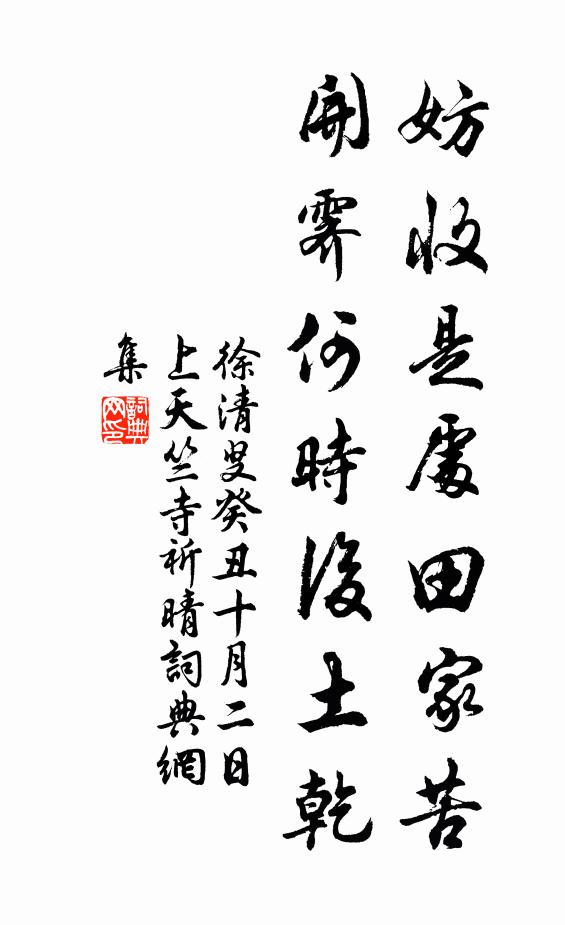 妨收是處田家苦
開霽何時後土乾
徐清叟癸丑十月二日
上天竺寺祈晴詞典網
集
詞典網印